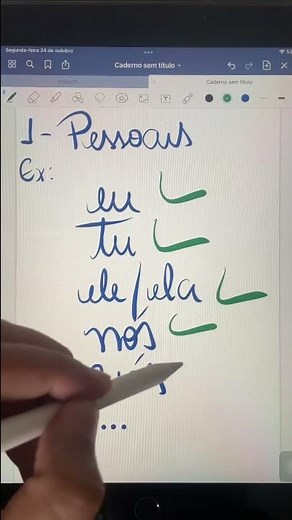 Segunda-feira 24 de outubro
Caderno sem título
Caderno sem título
1- Pessoais
Ex:
eu
tu
ele/ela
nós
...